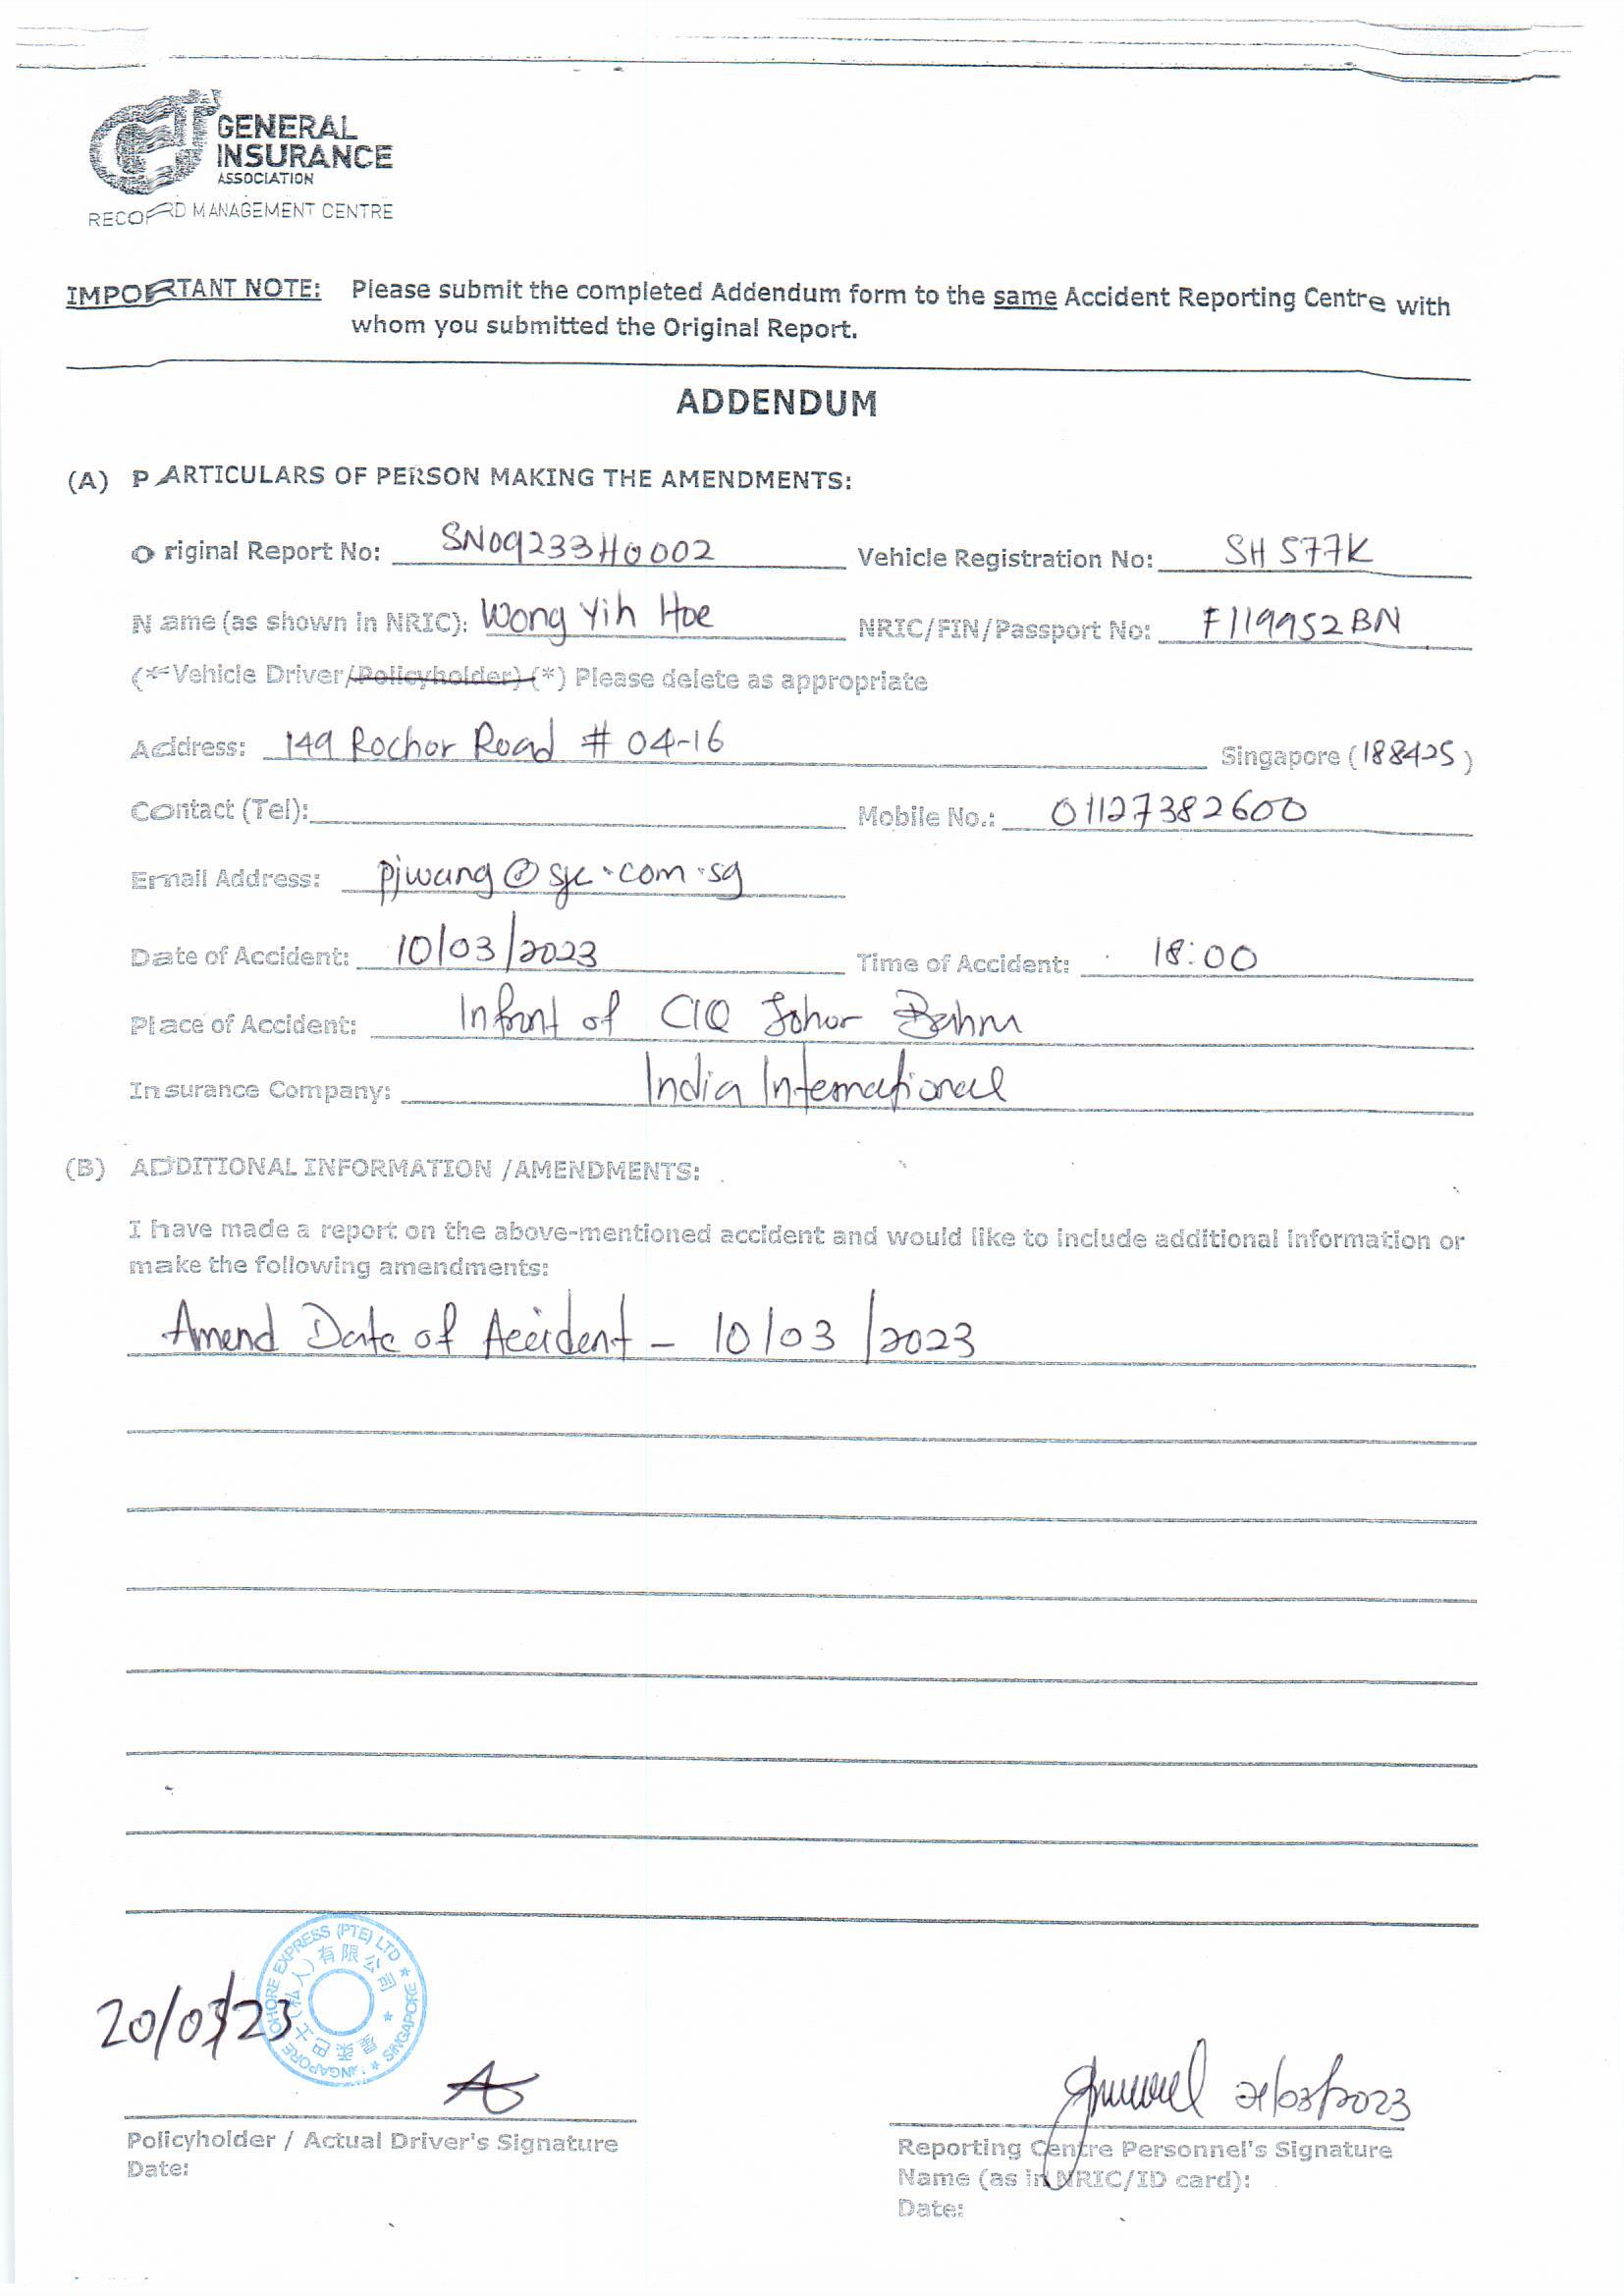 GENERAL
INSURANCE
ASSOCIATION
RECORD MANAGEMENT CENTRE
IMPORTANT NOTE: Please submit the completed Addendum form to the same Accident Reporting Centre with
whom you submitted the Original Report.
ADDENDUM
(A) PARTICULARS OF PERSON MAKING THE AMENDMENTS:
Original Report No: SN09233H0002 Vehicle Registration No: SH577K
Name (as shown in NRIC): Wong Yih Hoe NRIC/FIN/Passport No: F1199528N
(*Vehicle Driver/Policyholder) (*) Please delete as appropriate
Address: 149 Rochor Road # 04-16 Singapore (188425)
Contact (Tel): Mobile No.: 01127382600
Email Address: pjwang@sjc.com.sg
Date of Accident: 10/03/2023 Time of Accident: 18:00
Place of Accident: Infront of CIQ Johor Bahru
Insurance Company: India International
(B) ADDITIONAL INFORMATION /AMENDMENTS:
I have made a report on the above-mentioned accident and would like to include additional information or
make the following amendments:
Amend Date of Accident - 10/03/2023
20/03/23
OHORE EXPRESS (PTE) LTD ★ SINGAPORE ★
(私人)有限公司
21/03/2023
Policyholder / Actual Driver's Signature
Date:
Reporting Centre Personnel's Signature
Name (as in NRIC/ID card):
Date: